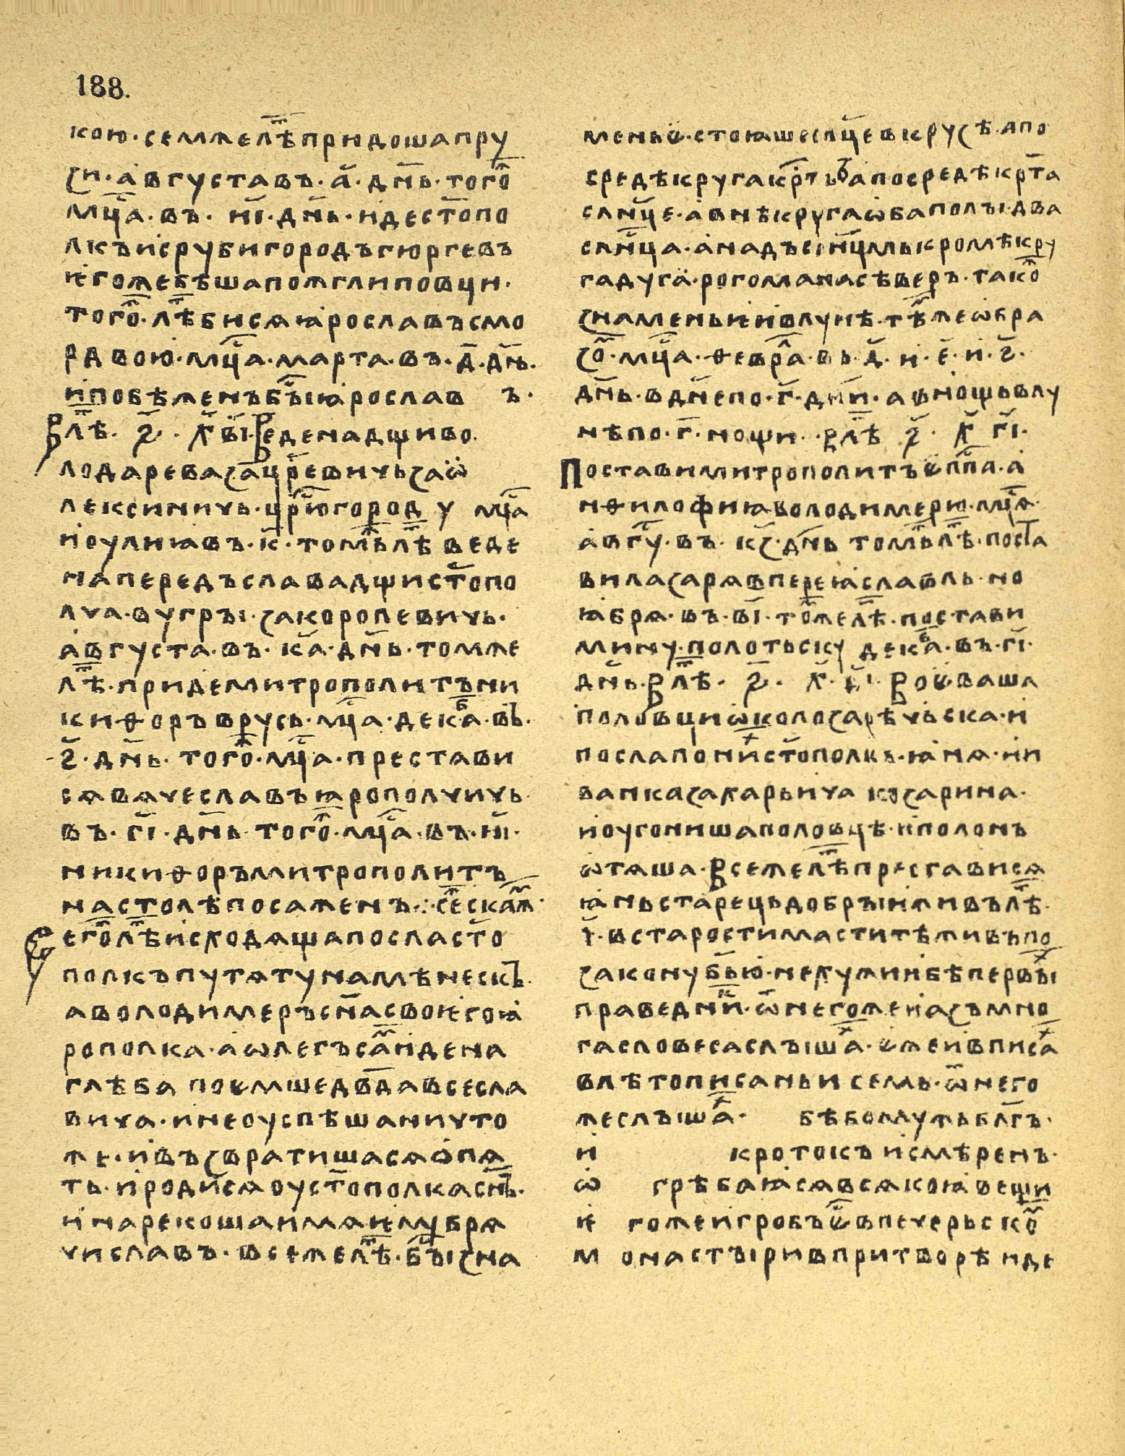 188.
кою·семжел̑ѣпридошапру
зи·августавъ·а҃·дн҃ь·того
мц҃а·въ·иі҃·дн҃ь·идест҃опо
лкъисрубигородъгюргевъ
ѥгожебѣшапожглиповци·
того·лѣ̑бисяꙗрославъсмо
рдвою·мц҃а·марта·въ·д҃·дн҃ь·
ипобѣженъбы̑ꙗрослав ъ·
В лѣ̑·҂ѕ҃·х҃·ві҃·Веденадщиво
лодаревазацр҃евичьзаѡ
лексиничь·цр҃югород у мц҃а
иоулиꙗвъ·к҃·томьлѣ̑ веде
напередъславадщист҃опо
лча·вугры·закоролевичь·
августа·въ·ка҃·дн҃ь·томже
лѣ̑·придемитрополитъни
киѳоръврусь·мц҃а·декав̑·въ·
ѕ҃·дн҃ь·того·мц҃а·престави
сявячеславъꙗрополчичь·
въ·гі҃·дн҃ь·того·мц҃а·въ·иі҃·
никиѳоръмитрополитъ
настолѣпосаженъ·:·се̑скаж̑
еголѣ̑исходящапосласт҃о
полкъпутятунамѣнескъ·
аволодимеръсн҃асвоѥгоꙗ
рополка·аѡлегъсам̑идена
глѣба поемшедвд҃авсесла
вича·инеоуспѣшаничто
же·ивъзвратишасяѡпя
ть·иродис̑яоуст҃ополкасн҃ъ·
инарекошаимяѥмубря
числавъ·всежелѣ̑·бы̑зна
меньѥ·стоꙗшеслн҃цевкрузѣ·апо
средѣкругакрт҃ъапосредѣкрт҃а
слн҃це·авнѣкругаѡбаполы·два
слн҃ца·анадъслн҃цмькромѣкру
гадуга·рогоманасѣверъ·тако
знаменьѥивлунѣ·тѣмжеѡбра
зом̑·мц҃а·ѳеврал̑а·въ·д҃·и·е҃·и·ѕ҃·
дн҃ь·вдн҃епо·г҃·дн҃и·авнощьвлу
нѣпо·г҃·нощи· Влѣ̑ ҂ѕ҃· х҃ гі҃·
Поставимитрополитъѥпп҃а·а
нѳилофиꙗволодимерю·мц҃я·
авгу̑·въ·кз҃·дн҃ь томьлѣ̑·поста
вилазарявпереꙗславль·но
ꙗбря·въ·ві҃·тожелѣ̑·постави
мину·полотьску дека̑·въ·гі҃·
дн҃ь·Влѣ̑·҂ѕ҃·х҃·ді҃·Воѥваша
половциѡколозарѣчьска·и
послапонихст҃ополкъ·ꙗня·ии
ванказахарьича козарина·
иоугонишаполовцѣ·иполонъ
ѡтяша·Всежелѣ̑преставися
ꙗньстарецьдобрыиживълѣ̑·
ч҃·встаростимаститѣживъпо
законуб҃ью·нехужиибѣпервы̑
праведник̑·ѿнегожеиазъмно
гасловесаслыша̑·ѥжеивписа̑
влѣтописаньи семь·ѿнего
жеслыша̑· бѣбомужьбл҃гъ·
и кротокъ исмѣренъ·
ѡ грѣбаꙗсявсякоꙗвещи
ѥ гожеигробъѥ̑впечерьском̑
м онастыривпритворѣ иде